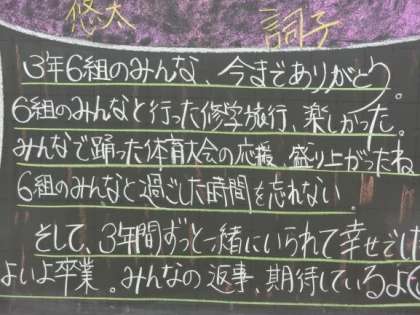 悠太 詞子
3年6組のみんな、今までありがとう。
6組のみんなと行った修学旅行、楽しかった。
みんなで踊った体育大会の応援、盛り上がったね
6組のみんなと過ごした時間を忘れない。
そして、3年間ずっと一緒にいられて幸せでし
よいよ卒業。みんなの返事、期待しているよ